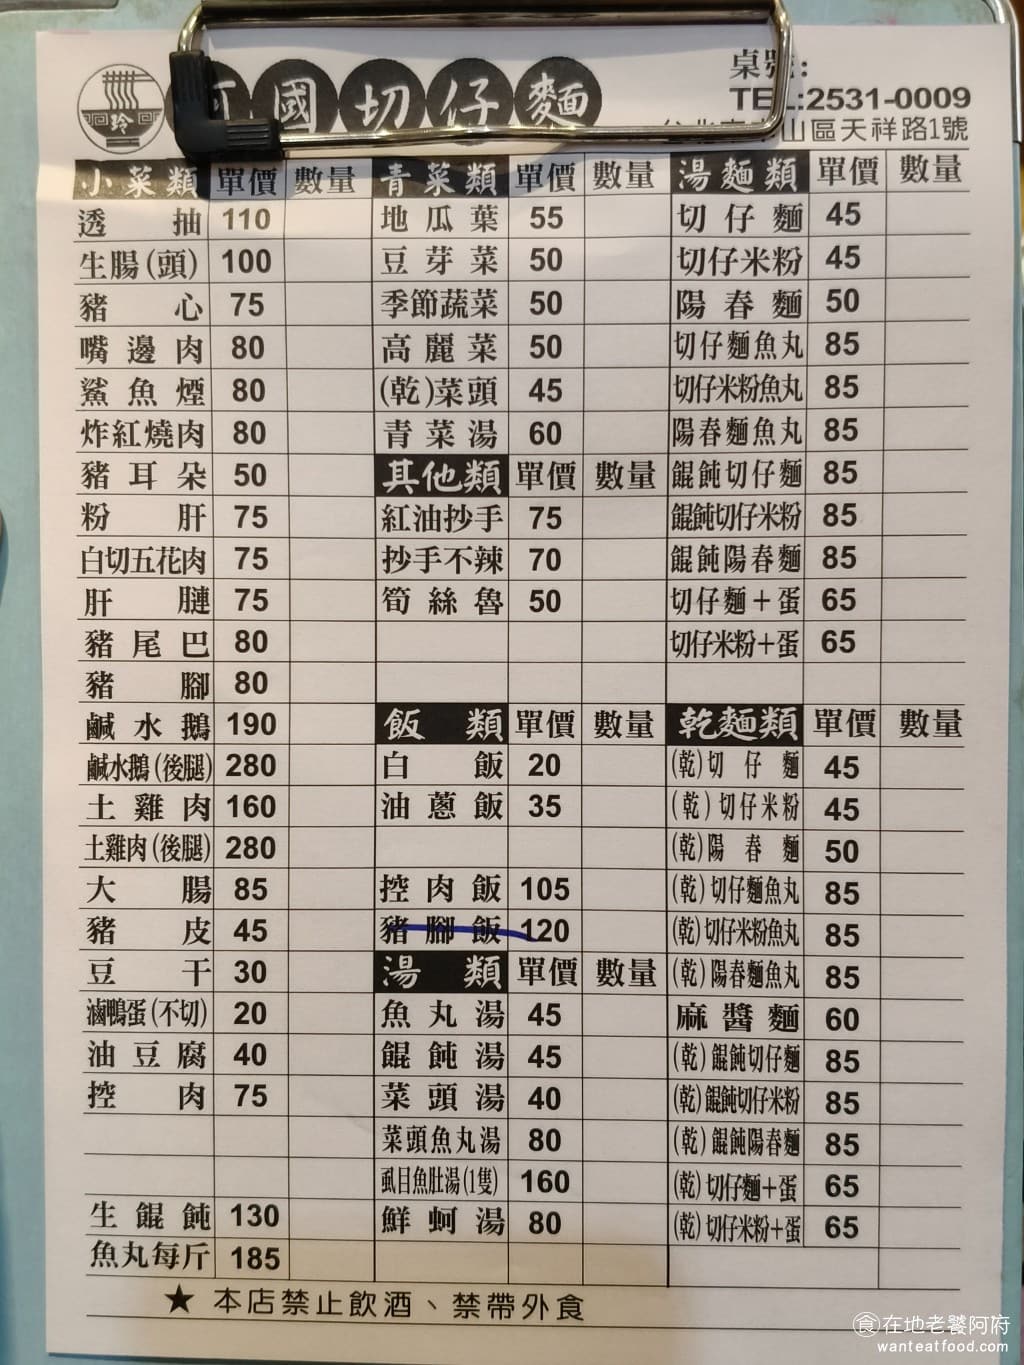 玲
國切仔麵
桌號:
TEL:2531-0009
山區天祥路1號
小菜類 單價 數量
透抽 110
生腸(頭) 100
豬心 75
嘴邊肉 80
鯊魚煙 80
炸紅燒肉 80
豬耳朵 50
粉肝 75
白切五花肉 75
肝膁 75
豬尾巴 80
豬腳 80
鹹水鵝 190
鹹水鵝(後腿) 280
土雞肉 160
土雞肉(後腿) 280
大腸 85
豬皮 45
豆干 30
滷鴨蛋(不切) 20
油豆腐 40
控肉 75
生餛飩 130
魚丸每斤 185
青菜類 單價 數量
地瓜葉 55
豆芽菜 50
季節蔬菜 50
高麗菜 50
(乾)菜頭 45
青菜湯 60
其他類 單價 數量
紅油抄手 75
抄手不辣 70
筍絲魯 50
飯類 單價 數量
白飯 20
油蔥飯 35
控肉飯 105
豬腳飯 120
湯類 單價 數量
魚丸湯 45
餛飩湯 45
菜頭湯 40
菜頭魚丸湯 80
虱目魚肚湯(1隻) 160
鮮蚵湯 80
湯麵類 單價 數量
切仔麵 45
切仔米粉 45
陽春麵 50
切仔麵魚丸 85
切仔米粉魚丸 85
陽春麵魚丸 85
餛飩切仔麵 85
餛飩切仔米粉 85
餛飩陽春麵 85
切仔麵+蛋 65
切仔米粉+蛋 65
乾麵類 單價 數量
(乾)切仔麵 45
(乾)切仔米粉 45
(乾)陽春麵 50
(乾)切仔麵魚丸 85
(乾)切仔米粉魚丸 85
(乾)陽春麵魚丸 85
麻醬麵 60
(乾)餛飩切仔麵 85
(乾)餛飩切仔米粉 85
(乾)餛飩陽春麵 85
(乾)切仔麵+蛋 65
(乾)切仔米粉+蛋 65
★ 本店禁止飲酒、禁帶外食
食在地老饕阿府
wanteatfood.com